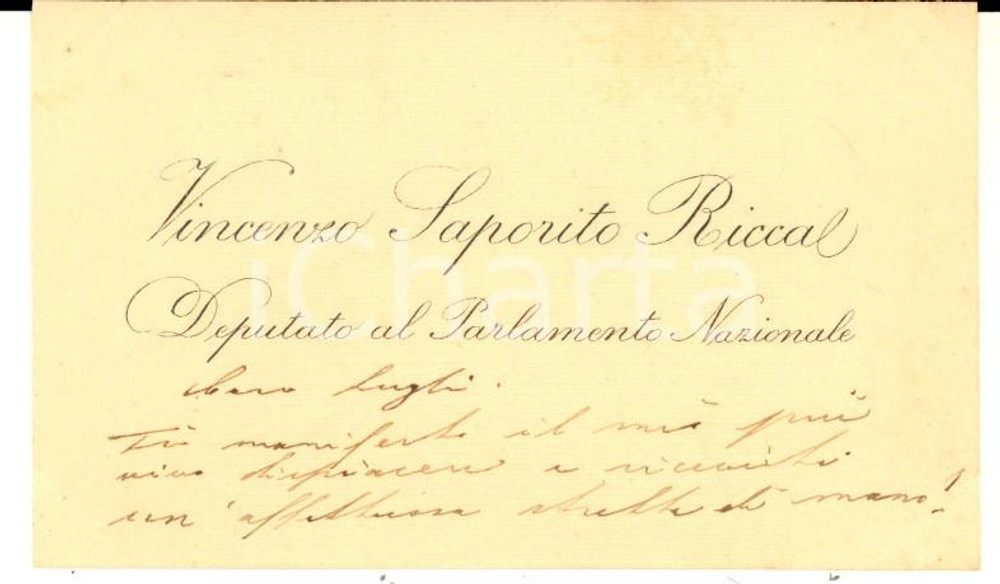 Vincenzo Saporito Riccal
Deputato al Parlamento Nazionale
iCharta
Caro Lugli.
Ti manifesto il mio più
vivo dispiacere e
un'affettuosa stretta di mano!